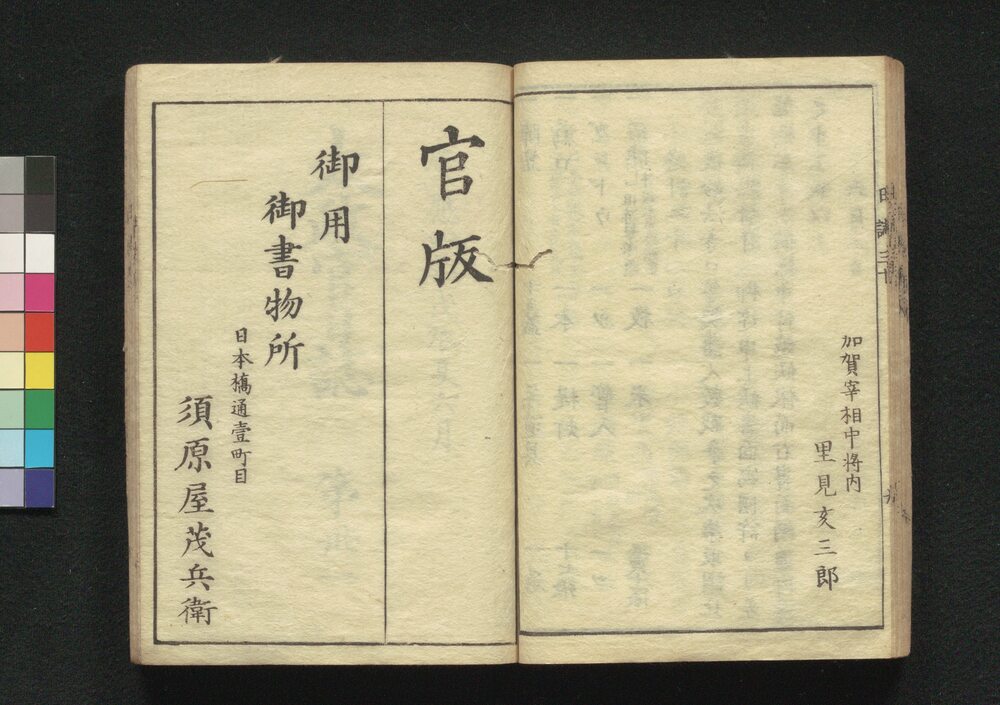 加賀宰相中将内
里見亥三郎
官版
御用
御書物所
日本橋通壹町目
須原屋茂兵衛